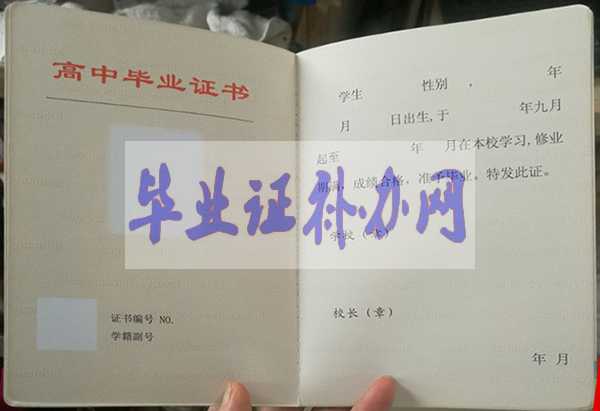 高中毕业证书
证书编号 NO.
学籍副号
学生 性别 , 年
月 日出生,于 年九月
起至 年 月在本校学习,修业
期满,成绩合格,准予毕业。特发此证。
学校(章)
校长(章)
年 月
毕业证补办网